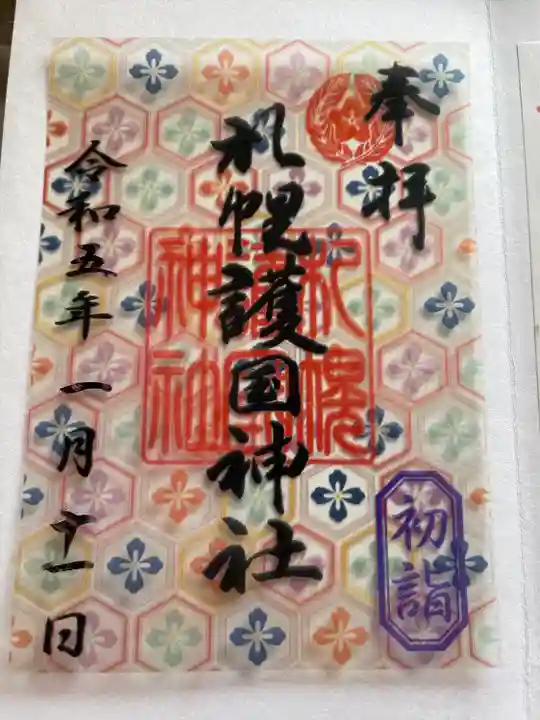 奉拝
札幌護国神社
札幌
護國
神社
初詣
令和五年一月十一日